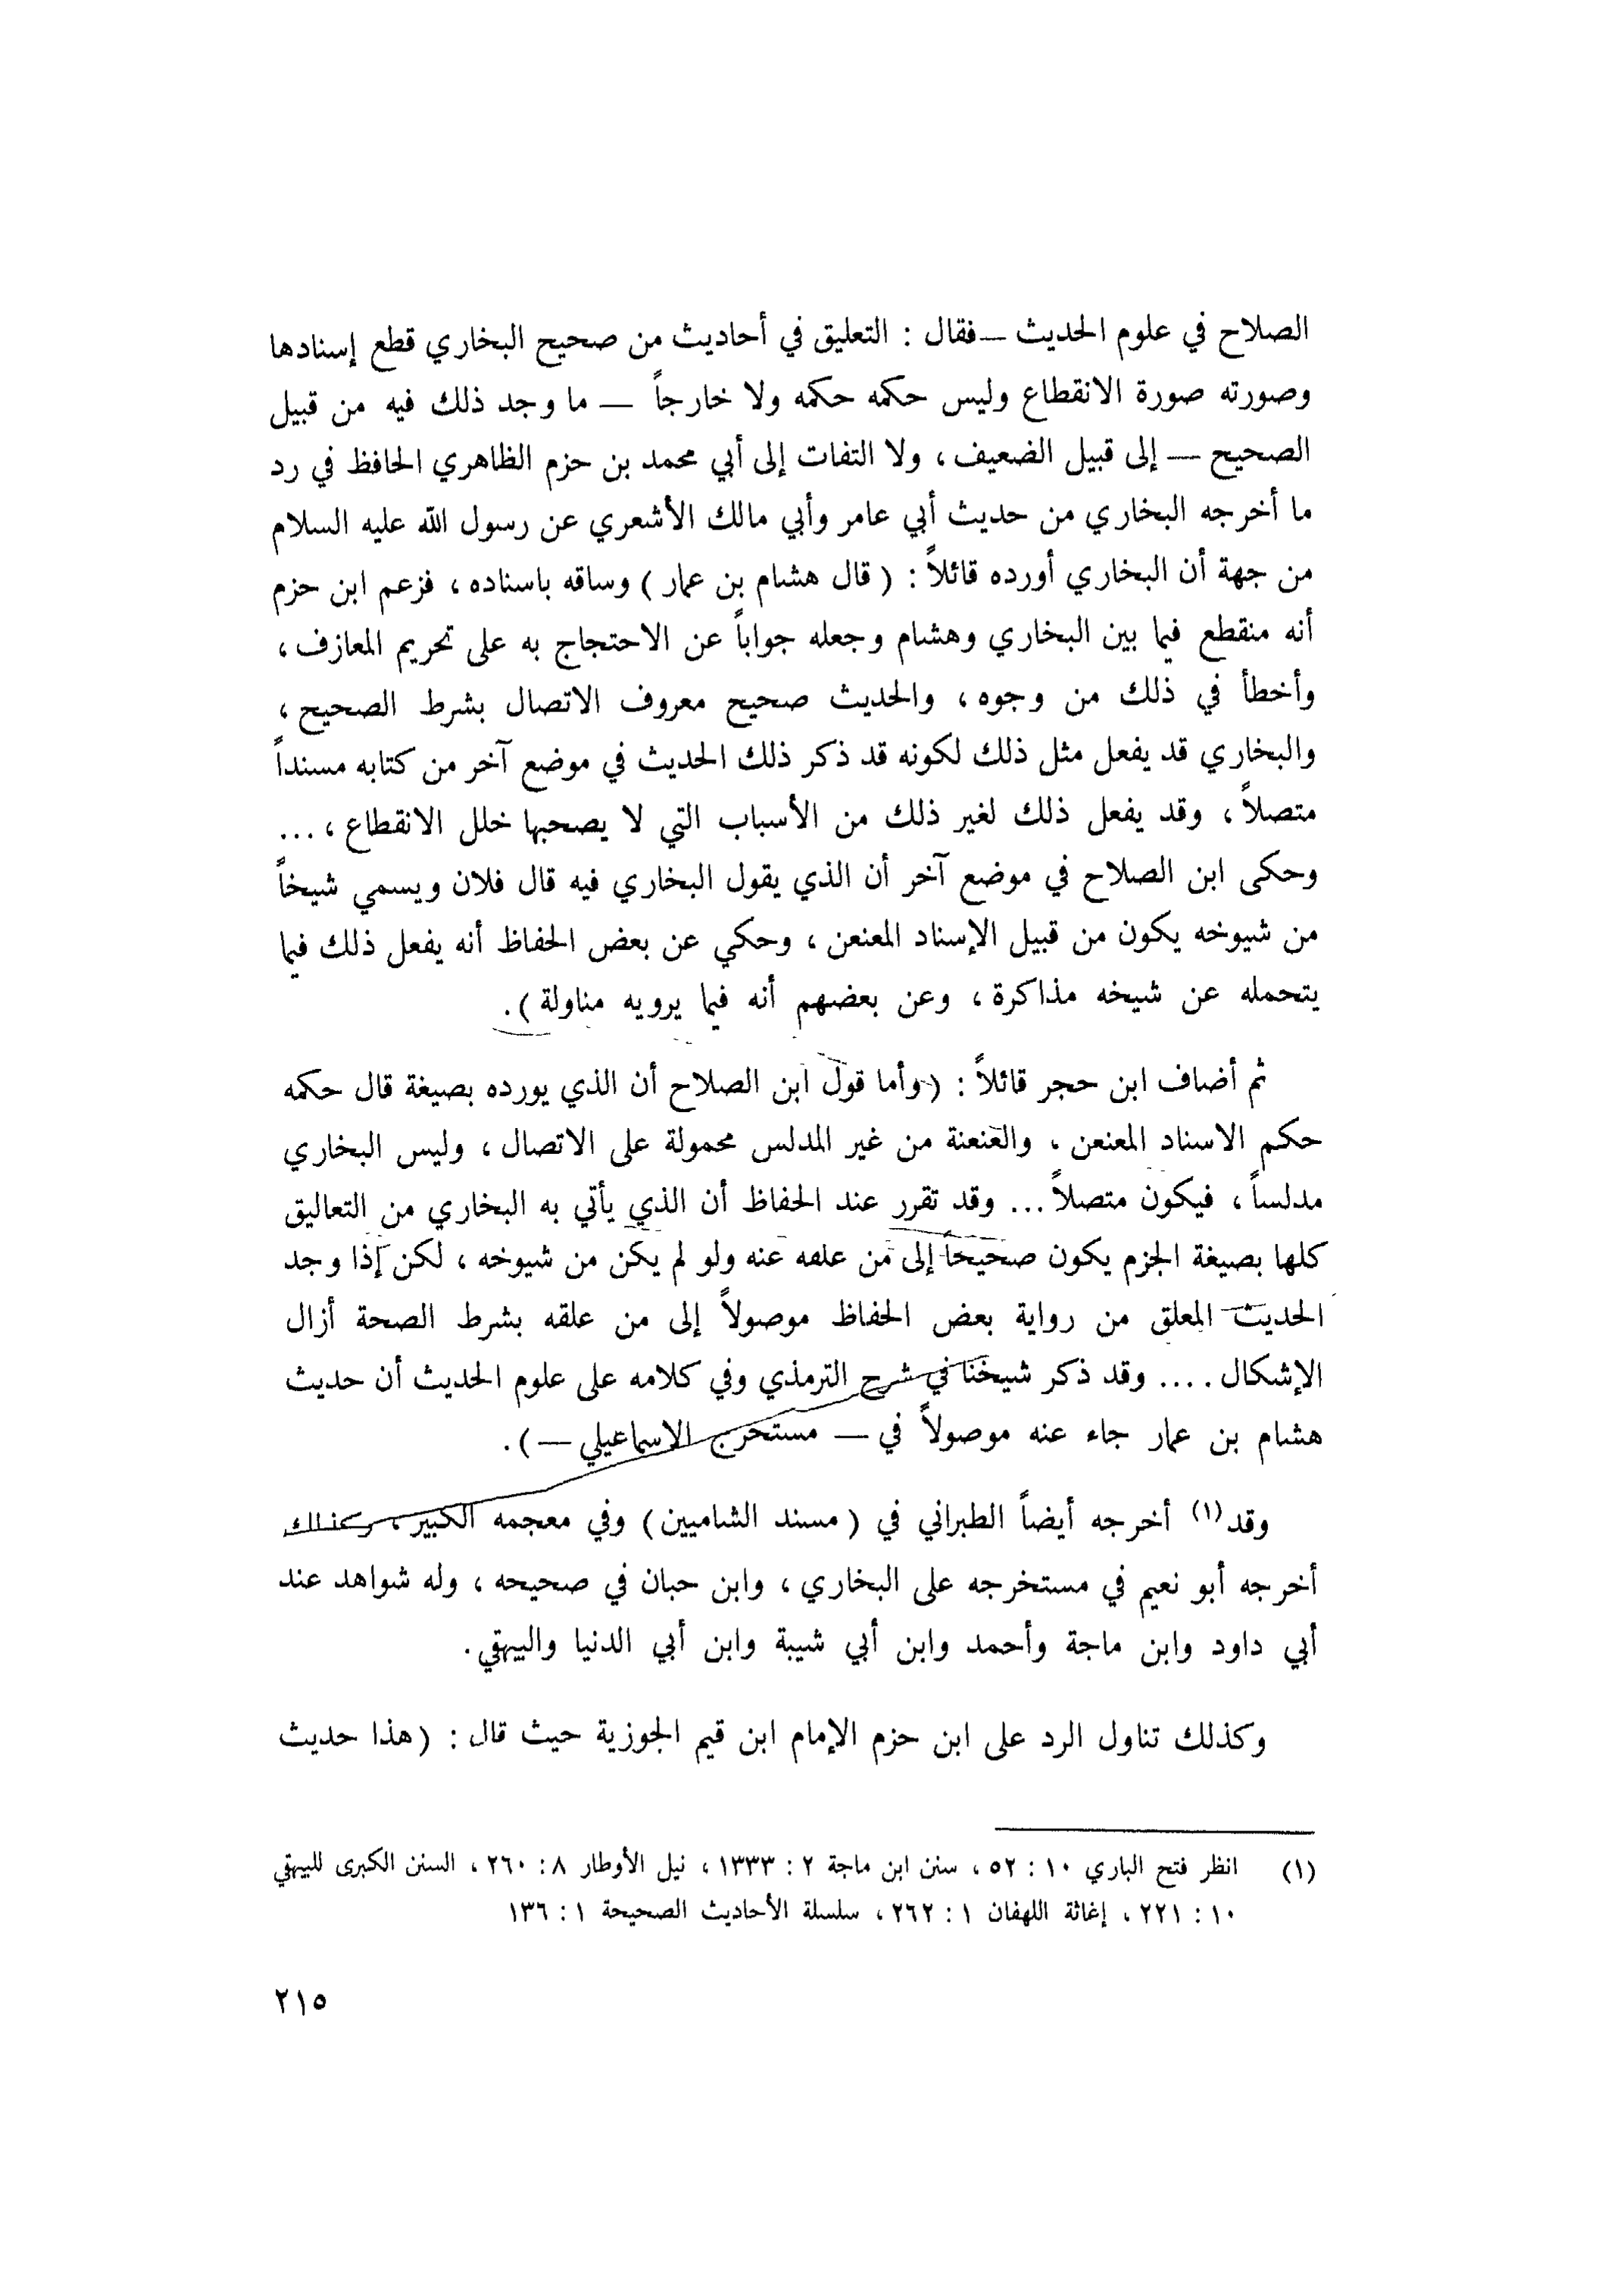 الصلاح في علوم الحديث — فقال : التعليق في أحاديث من صحيح البخاري قطع إسنادها
وصورته صورة الانقطاع وليس حكمه حكمه ولا خارجاً — ما وجد ذلك فيه من قبيل
الصحيح — إلى قبيل الضعيف ، ولا التفات إلى أبي محمد بن حزم الظاهري الحافظ في رد
ما أخرجه البخاري من حديث أبي عامر وأبي مالك الأشعري عن رسول الله عليه السلام
من جهة أن البخاري أورده قائلاً : ( قال هشام بن عمار ) وساقه باسناده ، فزعم ابن حزم
أنه منقطع فيما بين البخاري وهشام وجعله جواباً عن الاحتجاج به على تحريم المعازف ،
وأخطأ في ذلك من وجوه ، والحديث صحيح معروف الاتصال بشرط الصحيح ،
والبخاري قد يفعل مثل ذلك لكونه قد ذكر ذلك الحديث في موضع آخر من كتابه مسنداً
متصلاً ، وقد يفعل ذلك لغير ذلك من الأسباب التي لا يصحبها خلل الانقطاع ، ...
وحكى ابن الصلاح في موضع آخر أن الذي يقول البخاري فيه قال فلان ويسمي شيخاً
من شيوخه يكون من قبيل الإسناد المعنعن ، وحكي عن بعض الحفاظ أنه يفعل ذلك فيما
يتحمله عن شيخه مذاكرة ، وعن بعضهم أنه فيما يرويه مناولة ).
ثم أضاف ابن حجر قائلاً : ( وأما قول ابن الصلاح أن الذي يورده بصيغة قال حكمه
حكم الاسناد المعنعن ، والعنعنة من غير المدلس محمولة على الاتصال ، وليس البخاري
مدلساً ، فيكون متصلاً ... وقد تقرر عند الحفاظ أن الذي يأتي به البخاري من التعاليق
كلها بصيغة الجزم يكون صحيحاً إلى من علقه عنه ولو لم يكن من شيوخه ، لكن إذا وجد
الحديث المعلق من رواية بعض الحفاظ موصولاً إلى من علقه بشرط الصحة أزال
الإشكال .... وقد ذكر شيخنا في شرح الترمذي وفي كلامه على علوم الحديث أن حديث
هشام بن عمار جاء عنه موصولاً في — مستخرج الاسماعيلي — ).
وقد (١) أخرجه أيضاً الطبراني في ( مسند الشاميين ) وفي معجمه الكبير ، وكذلك
أخرجه أبو نعيم في مستخرجه على البخاري ، وابن حبان في صحيحه ، وله شواهد عند
أبي داود وابن ماجة وأحمد وابن أبي شيبة وابن أبي الدنيا والبيهقي.
وكذلك تناول الرد على ابن حزم الإمام ابن قيم الجوزية حيث قال : ( هذا حديث
(١) انظر فتح الباري ١٠ : ٥٢ ، سنن ابن ماجة ٢ : ١٣٣٣ ، نيل الأوطار ٨ : ٢٦٠ ، السنن الكبرى للبيهقي
١٠ : ٢٢١ ، إغاثة اللهفان ١ : ٢٦٢ ، سلسلة الأحاديث الصحيحة ١ : ١٣٦
٢١٥